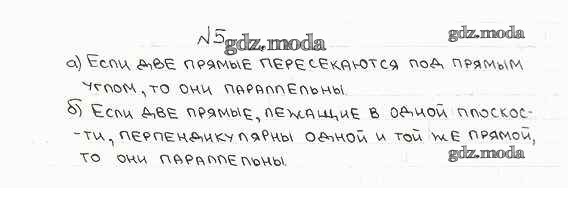 №5 gdz.moda gdz.moda
а) Если две прямые пересекаются под прямым
углом, то они параллельны.
б) Если две прямые, лежащие в одной плоскос-
-ти, перпендикулярны одной и той же прямой,
то они параллельны.
gdz.moda